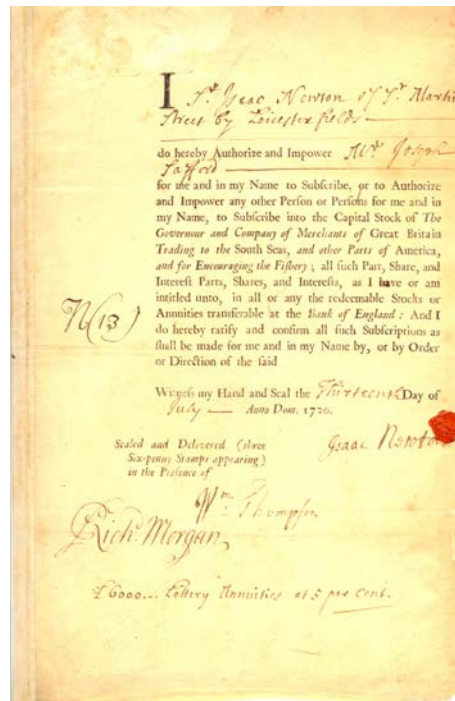 I Sr. Isaac Newton of St. Martin
Street by Leicester fields
do hereby Authorize and Impower Mr. Joseph
Safford
for me and in my Name to Subscribe, or to Authorize
and Impower any other Person or Persons for me and in
my Name, to Subscribe into the Capital Stock of The
Governour and Company of Merchants of Great Britain
Trading to the South Seas, and other Parts of America,
and for Encouraging the Fishery; all such Part, Share, and
Interest Parts, Shares, and Interests, as I have or am
intitled unto, in all or any the redeemable Stocks or
Annuities transferable at the Bank of England: And I
do hereby ratify and confirm all such Subscriptions as
shall be made for me and in my Name by, or by Order
or Direction of the said
N(13)
Witness my Hand and Seal the Thirteenth Day of
July Anno Dom. 1720.
Isaac Newton
Sealed and Delivered (three
Six-penny Stamps appearing)
in the Presence of
Wm. Thompson
Richd. Morgan
£6000... Lottery Annuities at 5 per Cent.